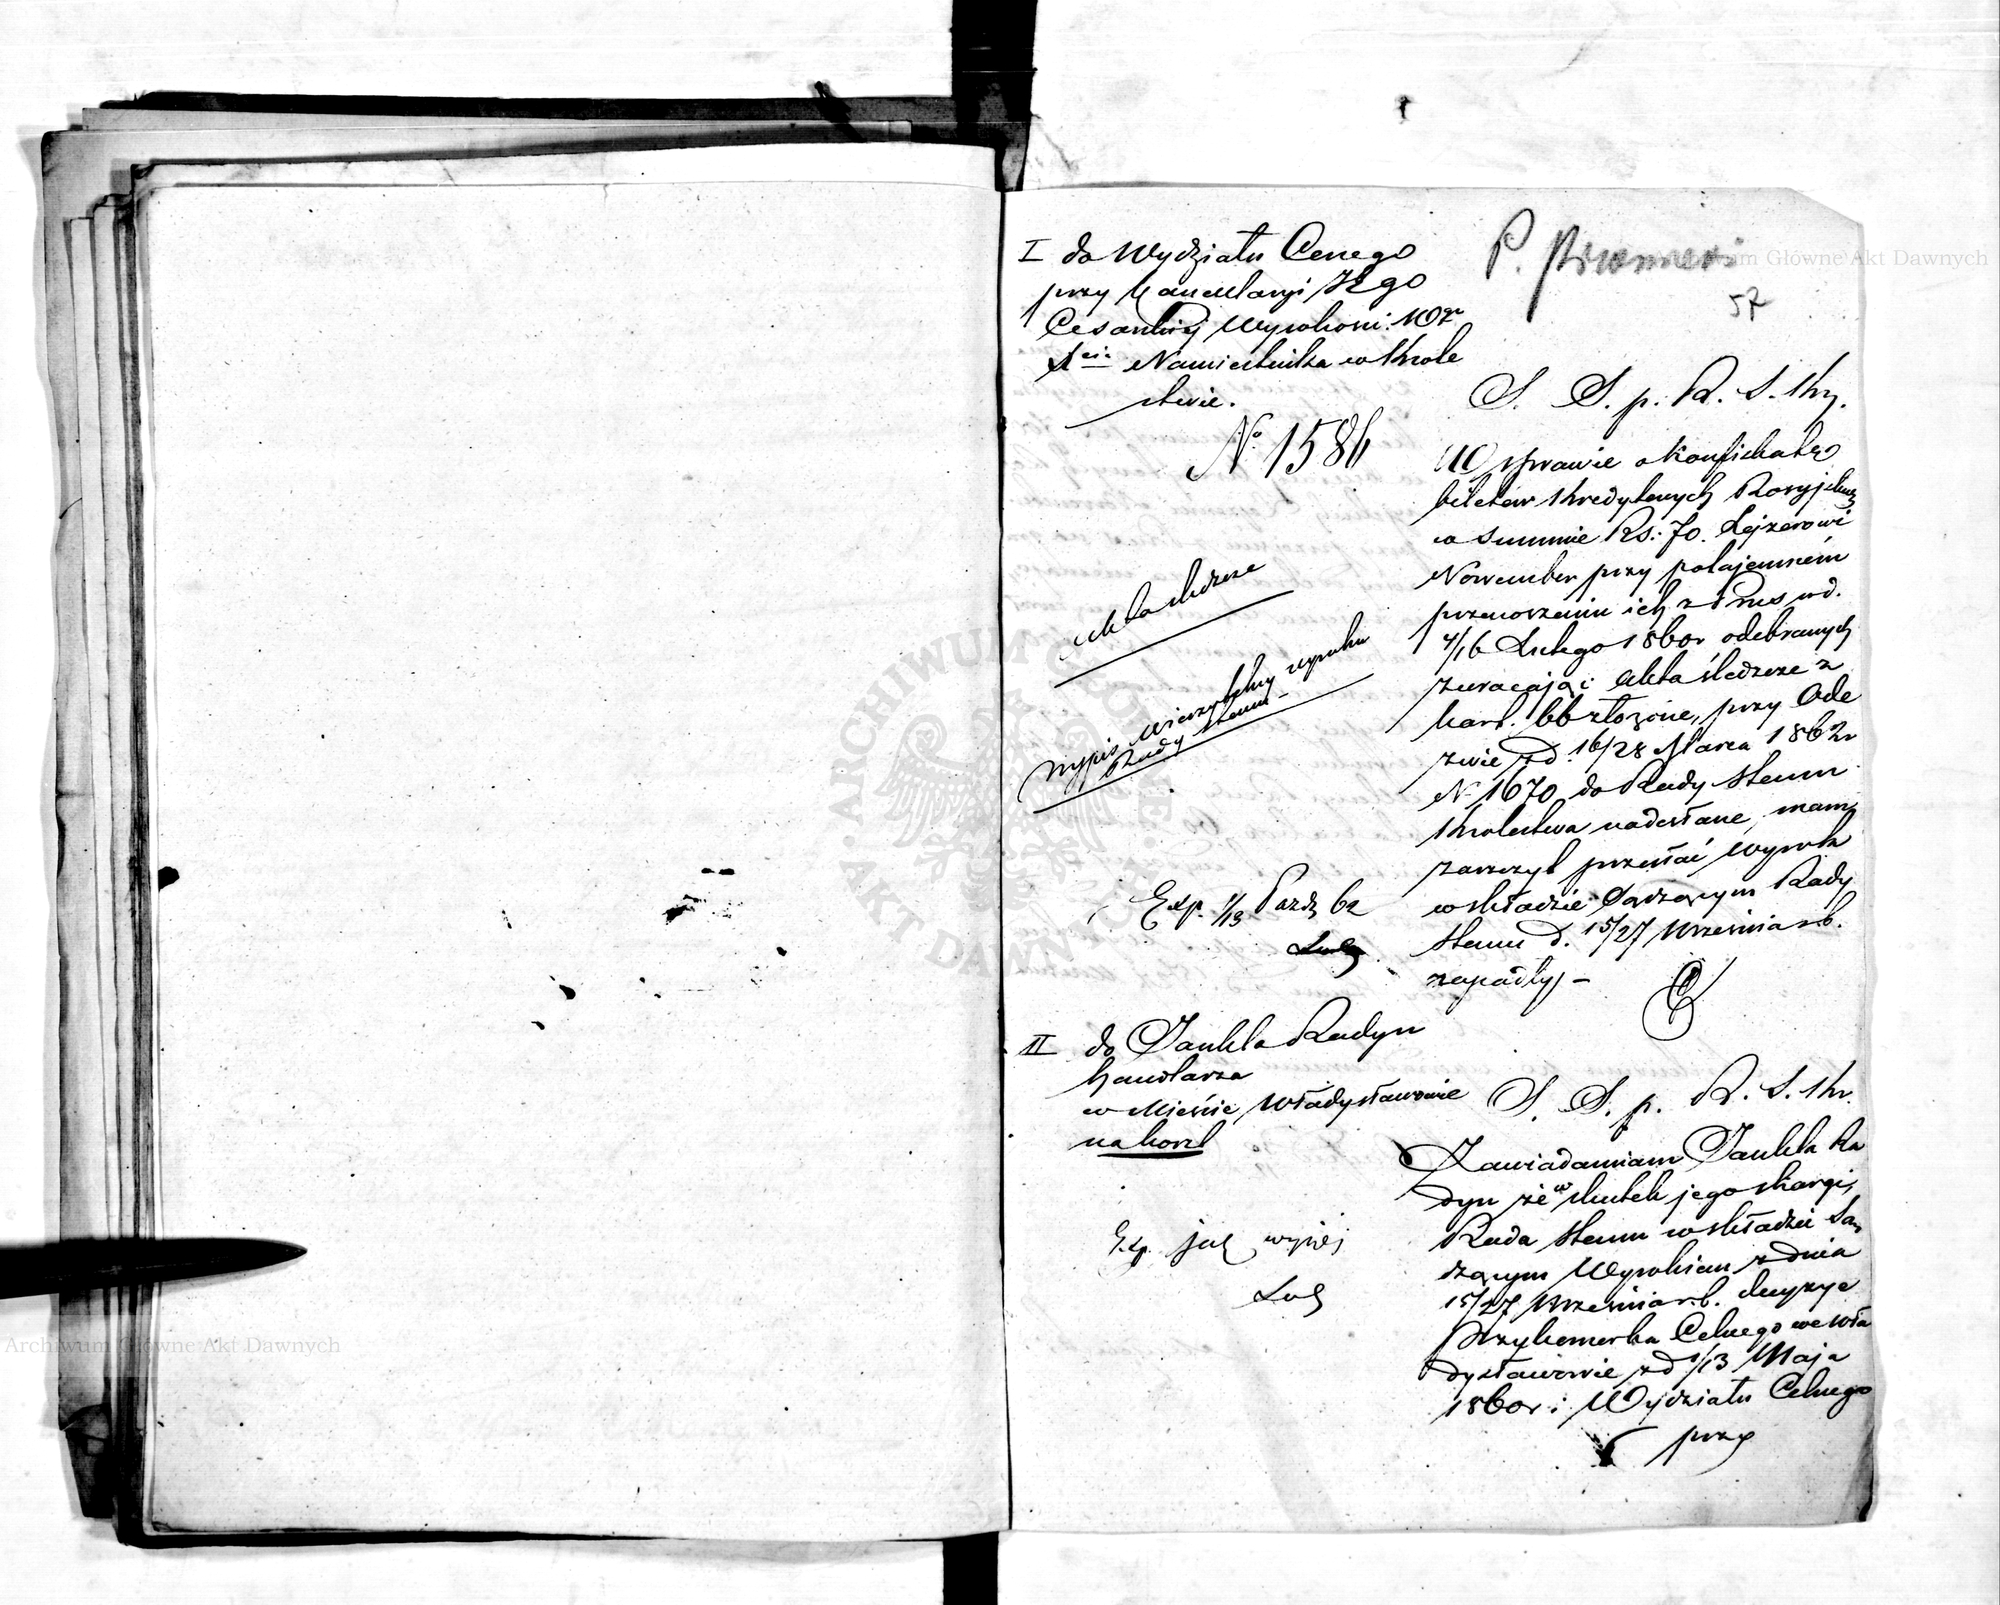 I do Wydziału Cenego
przy Kancelaryi JEgo
Cesarskiej Wysokości: W Xr
Xcia Namiestnika w Króle
stwie.
No 1586
Akta śledcze
wypis wierzytelny wyroku
Rady Stanu
Exp. 1/13 Paźdz 62
P.
57
S. S. p. R. S. Kr.
W sprawie o konfiskatę
biletów kredytowych Rossyjskich
w summie Rs: 70. Lejzerowi
November przy potajemném
przenoszeniu ich z Prus w d.
4/16 Lutego 1860r odebranych
zwracając akta śledcze z
kart. 66 złożone, przy Ode
zwie z d. 16/28 Marca 1862r
N 1670 do Rady Stanu
Królestwa nadesłane, mam
zaszczyt przesłać wyrok
w składzie Sądzącym Rady
Stanu d. 15/27 Września r.b.
zapadły –
II do Jankla Radyn
handlarza
w Mieście Władysławowie
na Korzl
Exp. jak wyżej
S. S. p. R. S. Kr.
Zawiadamiam Jankla Ra
dyn że w skutek jego skargi,
Rada Stanu w składzie Są
dzącym Wyrokiem z dnia
15/27 Września r.b. decyzye
Przykomorka Celnego we Wła
dysławowie z d 1/13 Maja
1860r i Wydziału Celnego
przy
Archiwum Główne Akt Dawnych
Archiwum Główne Akt Dawnych
ARCHIWUM GŁÓWNE AKT DAWNYCH